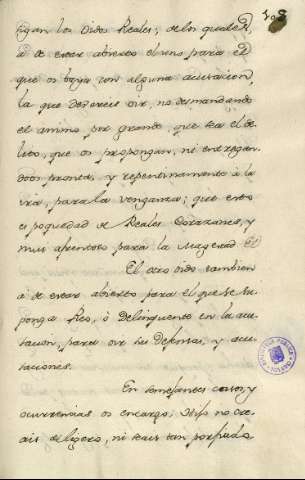 103
sigan los Oidos Reales; de los quales el
á de estar abierto el uno para el
que os traya con alguna acusacion,
la que devereis oir, no desmandando
el animo por grande, que sea el de-
lito, que os propongan, ni entregan-
doos pronta, y repentinamente á la
ira, para la venganza; que esto
es poquedad de Reales Corazones, y
mui afrentoso para la Magestad
El otro oido tambien
á de estar abierto para el que se su-
ponga Reo, ó Delinquente en la acu-
sacion, para oir sus Defensas, y
-taciones.
En semejantes casos, y
ocurrencias os encargo, Hijo no cre-
ais de ligero, ni seais tan porfiado